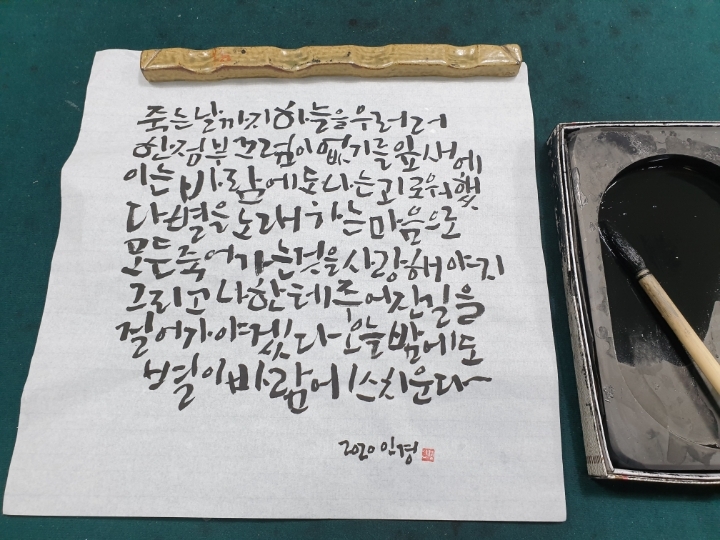 죽는날까지하늘을우러러
한점부끄럼이없기를잎새에
이는바람에도나는괴로워했
다별을노래하는마음으로
모든죽어가는것을사랑해야지
그리고나한테주어진길을
걸어가야겠다오늘밤에도
별이바람에스치운다
2020 인경